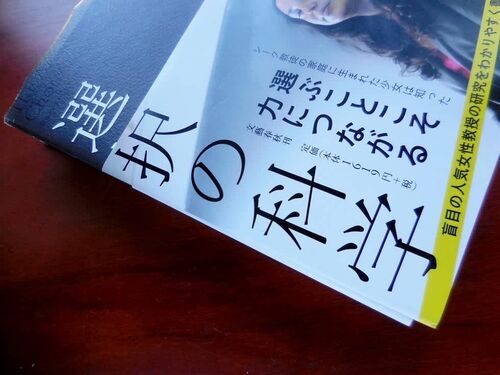 選択の科学
シーク教徒の家庭に生まれた少女は知った
選ぶことこそ
力につながる
文藝春秋刊 定価(本体1619円+税)
盲目の人気女性教授の研究をわかりやすく